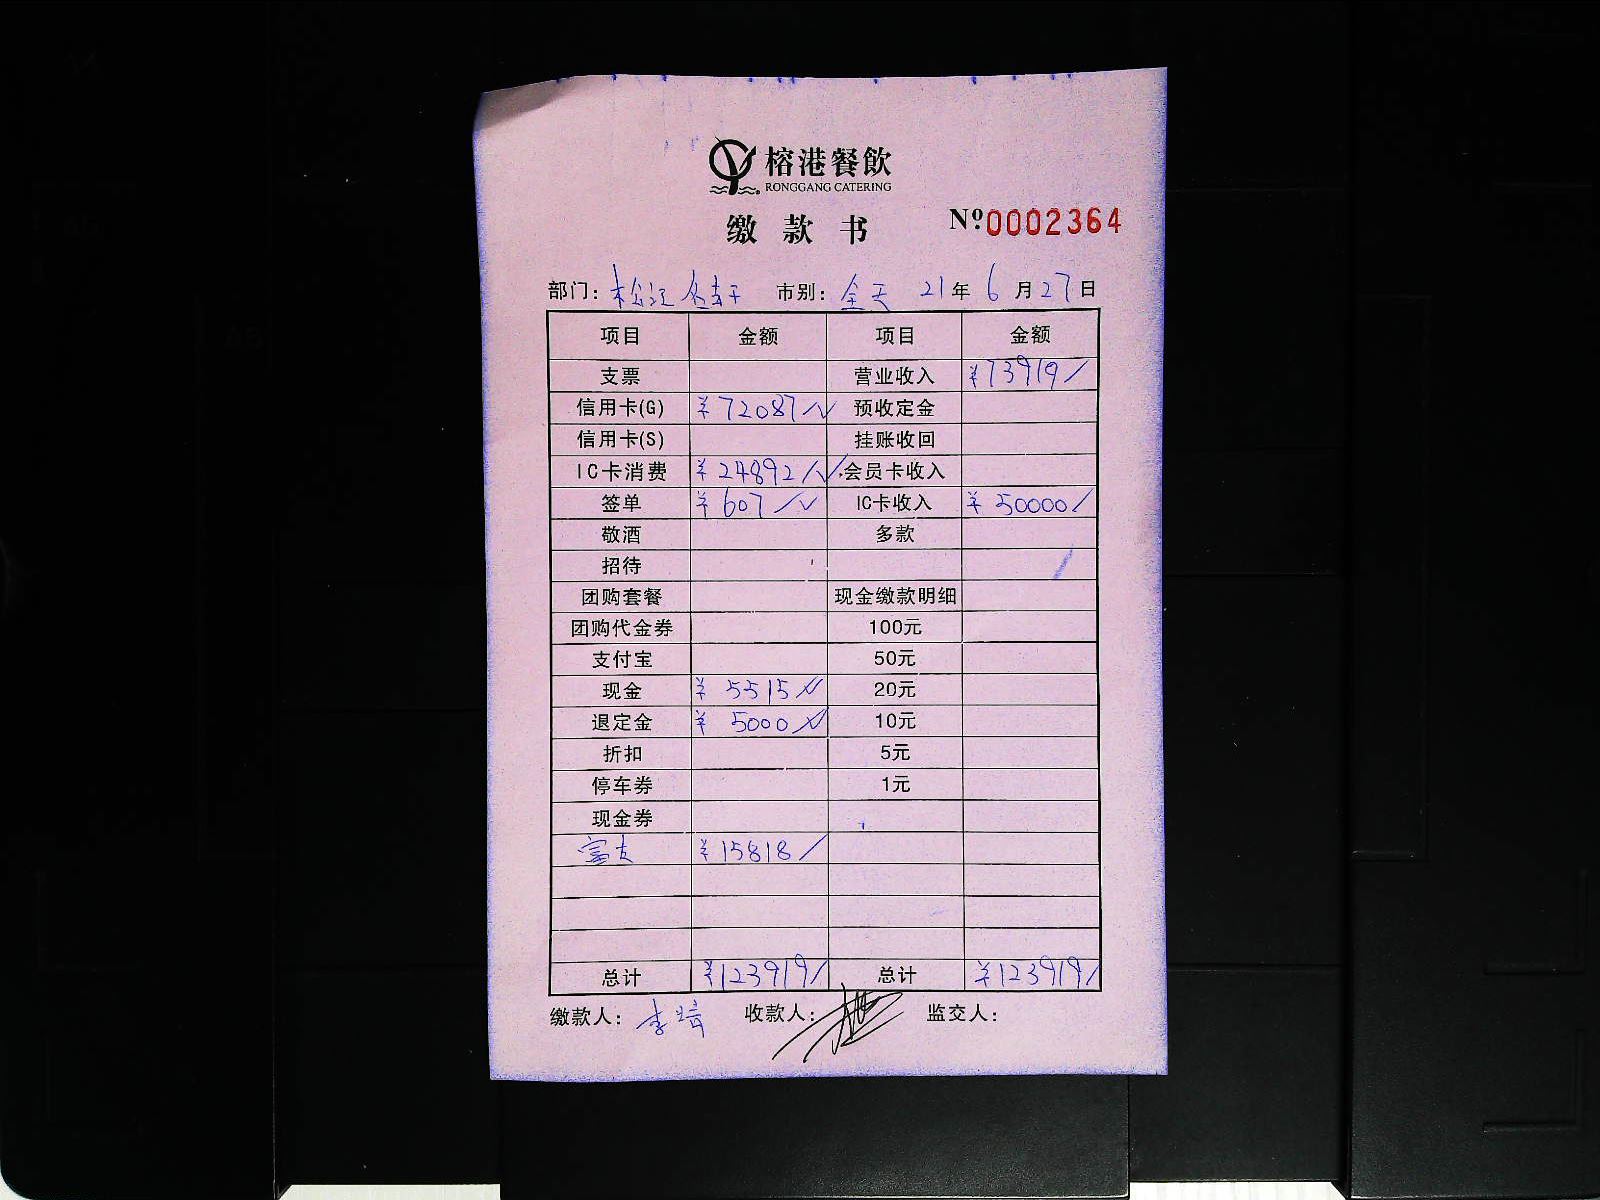 榕港餐飲
RONGGANG CATERING
缴款书 Nº0002364
部门: 松江 市别: 全天 21年6月27日
项目 金额 项目 金额
支票 营业收入 ¥73919/
信用卡(G) ¥72087/√ 预收定金
信用卡(S) 挂账收回
IC卡消费 ¥24892/√ 会员卡收入
签单 ¥607/√ IC卡收入 ¥50000/
敬酒 多款
招待
团购套餐 现金缴款明细
团购代金券 100元
支付宝 50元
现金 ¥5515/√ 20元
退定金 ¥5000/√ 10元
折扣 5元
停车券 1元
现金券
¥15818/
总计 ¥123919/ 总计 ¥123919/
缴款人: 李 收款人: 监交人: